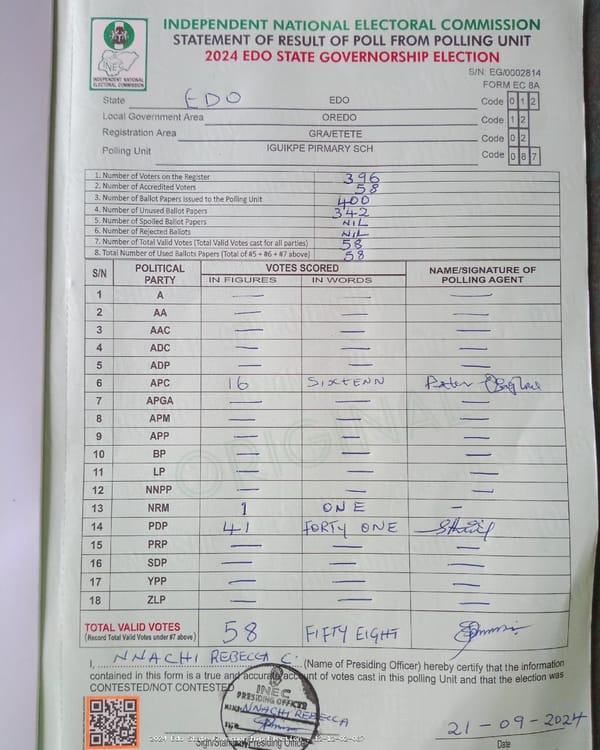 INDEPENDENT NATIONAL ELECTORAL COMMISSION
STATEMENT OF RESULT OF POLL FROM POLLING UNIT
2024 EDO STATE GOVERNORSHIP ELECTION
INEC
INDEPENDENT NATIONAL
ELECTORAL COMMISSION
S/N: EG/0002814
FORM EC 8A
State EDO EDO Code 0 1 2
Local Government Area OREDO Code 1 2
Registration Area GRA/ETETE Code 0 2
Polling Unit IGUIKPE PIRMARY SCH Code 0 8 7
1. Number of Voters on the Register 396
2. Number of Accredited Voters 58
3. Number of Ballot Papers Issued to the Polling Unit 400
4. Number of Unused Ballot Papers 342
5. Number of Spoiled Ballot Papers NIL
6. Number of Rejected Ballots NIL
7. Number of Total Valid Votes (Total Valid Votes cast for all parties) 58
8. Total Number of Used Ballots Papers (Total of #5 + #6 + #7 above) 58
S/N POLITICAL PARTY VOTES SCORED NAME/SIGNATURE OF POLLING AGENT
IN FIGURES IN WORDS
1 A — — —
2 AA — — —
3 AAC — — —
4 ADC — — —
5 ADP — — —
6 APC 16 SIXTENN Peter
7 APGA — — —
8 APM — — —
9 APP — — —
10 BP — — —
11 LP — — —
12 NNPP — — —
13 NRM 1 ONE —
14 PDP 41 FORTY ONE
15 PRP — — —
16 SDP — — —
17 YPP — — —
18 ZLP — — —
TOTAL VALID VOTES 58 FIFTY EIGHT
(Record Total Valid Votes under #7 above)
ORIGINAL
I, NNACHI REBECCA C. (Name of Presiding Officer) hereby certify that the information
contained in this form is a true and accurate account of votes cast in this polling Unit and that the election was
CONTESTED/NOT CONTESTED
INEC
PRESIDING OFFICER
NNACHI REBECCA
21-09-2024
2024 Edo State Governorship Election - 12-12-02-087
Sign/Stamp Presiding Officer Date